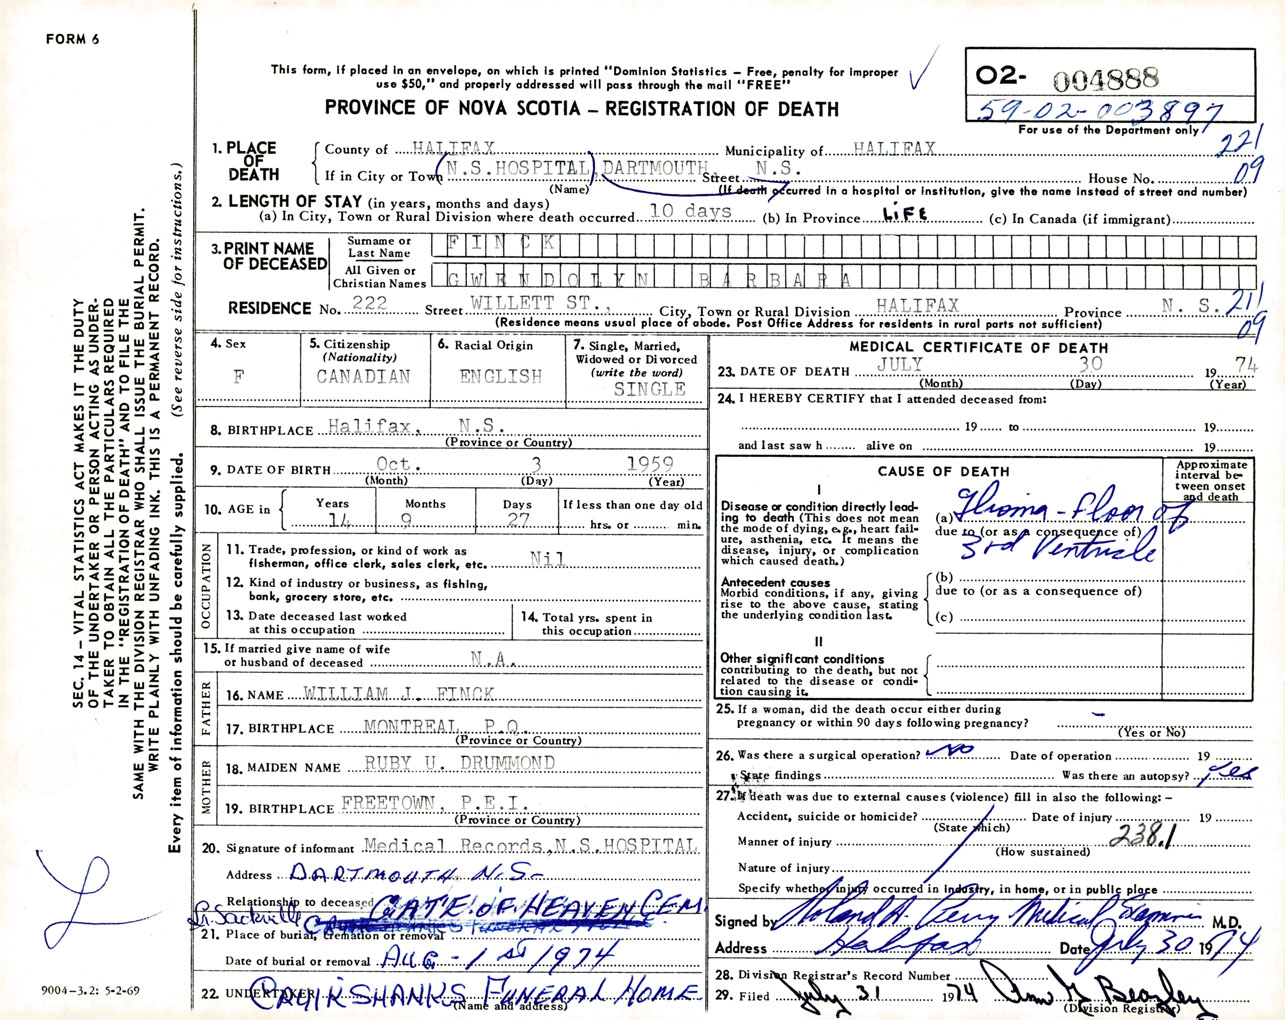 FORM 6
This form, if placed in an envelope, on which is printed "Dominion Statistics – Free, penalty for improper
use $50," and properly addressed will pass through the mail "FREE"
PROVINCE OF NOVA SCOTIA – REGISTRATION OF DEATH
02- 004888
59-02-003897
For use of the Department only
221
09
1. PLACE OF DEATH
County of HALIFAX Municipality of HALIFAX
If in City or Town N.S.HOSPITAL, DARTMOUTH Street N.S. House No.
(Name) (If death occurred in a hospital or institution, give the name instead of street and number)
2. LENGTH OF STAY (in years, months and days)
(a) In City, Town or Rural Division where death occurred 10 days (b) In Province LIFE (c) In Canada (if immigrant)
3. PRINT NAME OF DECEASED
Surname or Last Name FINCK
All Given or Christian Names GWENDOLYN BARBARA
RESIDENCE No. 222 Street WILLETT ST., City, Town or Rural Division HALIFAX Province N. S.
211
09
(Residence means usual place of abode. Post Office Address for residents in rural parts not sufficient)
4. Sex
F
5. Citizenship
(Nationality)
CANADIAN
6. Racial Origin
ENGLISH
7. Single, Married,
Widowed or Divorced
(write the word)
SINGLE
8. BIRTHPLACE Halifax, N.S.
(Province or Country)
9. DATE OF BIRTH Oct. 3 1959
(Month) (Day) (Year)
10. AGE in
Years Months Days If less than one day old
14 9 27 hrs. or min.
OCCUPATION
11. Trade, profession, or kind of work as
fisherman, office clerk, sales clerk, etc. Nil
12. Kind of industry or business, as fishing,
bank, grocery store, etc.
13. Date deceased last worked
at this occupation
14. Total yrs. spent in
this occupation
15. If married give name of wife
or husband of deceased N.A.
FATHER
16. NAME WILLIAM J. FINCK
17. BIRTHPLACE MONTREAL, P.Q.
(Province or Country)
MOTHER
18. MAIDEN NAME RUBY U. DRUMMOND
19. BIRTHPLACE FREETOWN, P.E.I.
(Province or Country)
20. Signature of informant Medical Records, N.S.HOSPITAL
Address DARTMOUTH N.S-
Relationship to deceased
Lr. Sackville GATE OF HEAVEN CEM.
21. Place of burial, cremation or removal
Date of burial or removal AUG - 1ST 1974
22. UNDERTAKER CRUIKSHANKS FUNERAL HOME
(Name and address)
MEDICAL CERTIFICATE OF DEATH
23. DATE OF DEATH JULY 30 1974
(Month) (Day) (Year)
24. I HEREBY CERTIFY that I attended deceased from:
19 to 19
and last saw h alive on 19
CAUSE OF DEATH
Approximate interval between onset and death
I
Disease or condition directly lead-
ing to death (This does not mean
the mode of dying, e.g., heart fail-
ure, asthenia, etc. It means the
disease, injury, or complication
which caused death.)
(a) Glioma - Floor of
due to (or as a consequence of)
3rd Ventricle
Antecedent causes
Morbid conditions, if any, giving
rise to the above cause, stating
the underlying condition last.
(b)
due to (or as a consequence of)
(c)
II
Other significant conditions
contributing to the death, but not
related to the disease or condi-
tion causing it.
25. If a woman, did the death occur either during
pregnancy or within 90 days following pregnancy? –
(Yes or No)
26. Was there a surgical operation? No Date of operation 19
State findings Was there an autopsy? Yes
27. If death was due to external causes (violence) fill in also the following: –
Accident, suicide or homicide? Date of injury 19
(State which)
Manner of injury 238.1
(How sustained)
Nature of injury
Specify whether injury occurred in industry, in home, or in public place
Signed by Roland A. Perry Medical Examiner M.D.
Address Halifax Date July 30 1974
28. Division Registrar's Record Number
29. Filed July 31 1974 Ann M Beazley
(Division Registrar)
SEC. 14 – VITAL STATISTICS ACT MAKES IT THE DUTY
OF THE UNDERTAKER OR PERSON ACTING AS UNDER-
TAKER TO OBTAIN ALL THE PARTICULARS REQUIRED
IN THE "REGISTRATION OF DEATH" AND TO FILE THE
SAME WITH THE DIVISION REGISTRAR WHO SHALL ISSUE THE BURIAL PERMIT.
WRITE PLAINLY WITH UNFADING INK. THIS IS A PERMANENT RECORD.
Every item of information should be carefully supplied. (See reverse side for instructions.)
9004-3.2: 5-2-69